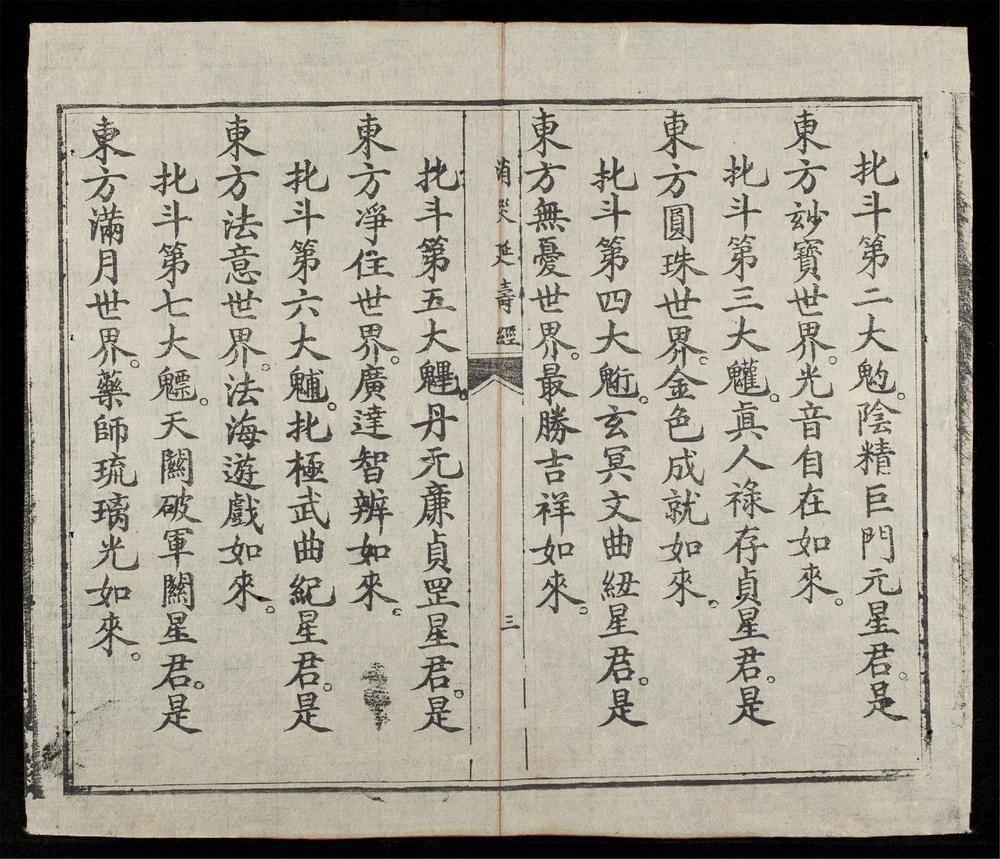 北斗第二大魁。陰精巨門元星君。是
東方玅寶世界。光音自在如來。
北斗第三大魓。眞人祿存貞星君。是
東方圓珠世界。金色成就如來。
北斗第四大魒。玄冥文曲紐星君。是
東方無憂世界。最勝吉祥如來。
消災延壽經
三
北斗第五大魓。丹元廉貞罡星君。是
東方淨住世界。廣達智辨如來。
北斗第六大䰢。北極武曲紀星君。是
東方法意世界。法海遊戲如來。
北斗第七大魒。天關破軍關星君。是
東方滿月世界。藥師琉璃光如來。